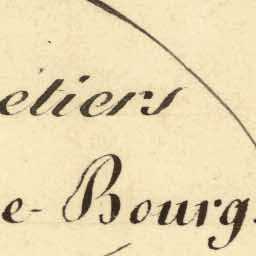 etiers
e-Bourg.